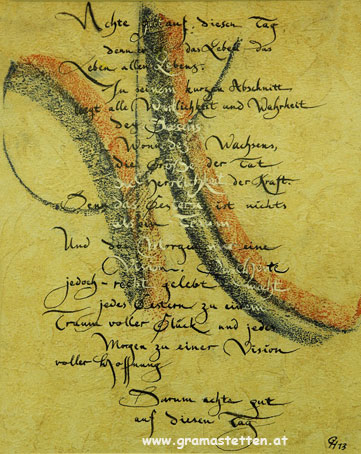 Achte gut auf diesen Tag
denn er ist das Leben das
Leben allen Lebens.
In seinem kurzen Abschnitt
liegt alle Wirklichkeit und Wahrheit
des Daseins
Wonne des Wachsens,
die Größe der Tat
die Herrlichkeit der Kraft.
Denn das Gestern ist nichts
als ein Traum
Und das Morgen nur eine
Vision. Das Heute
jedoch - recht gelebt macht
jedes Gestern zu einem
Traum voller Glück und jedes
Morgen zu einer Vision
voller Hoffnung
Darum achte gut
auf diesen Tag
www.gramastetten.at
13